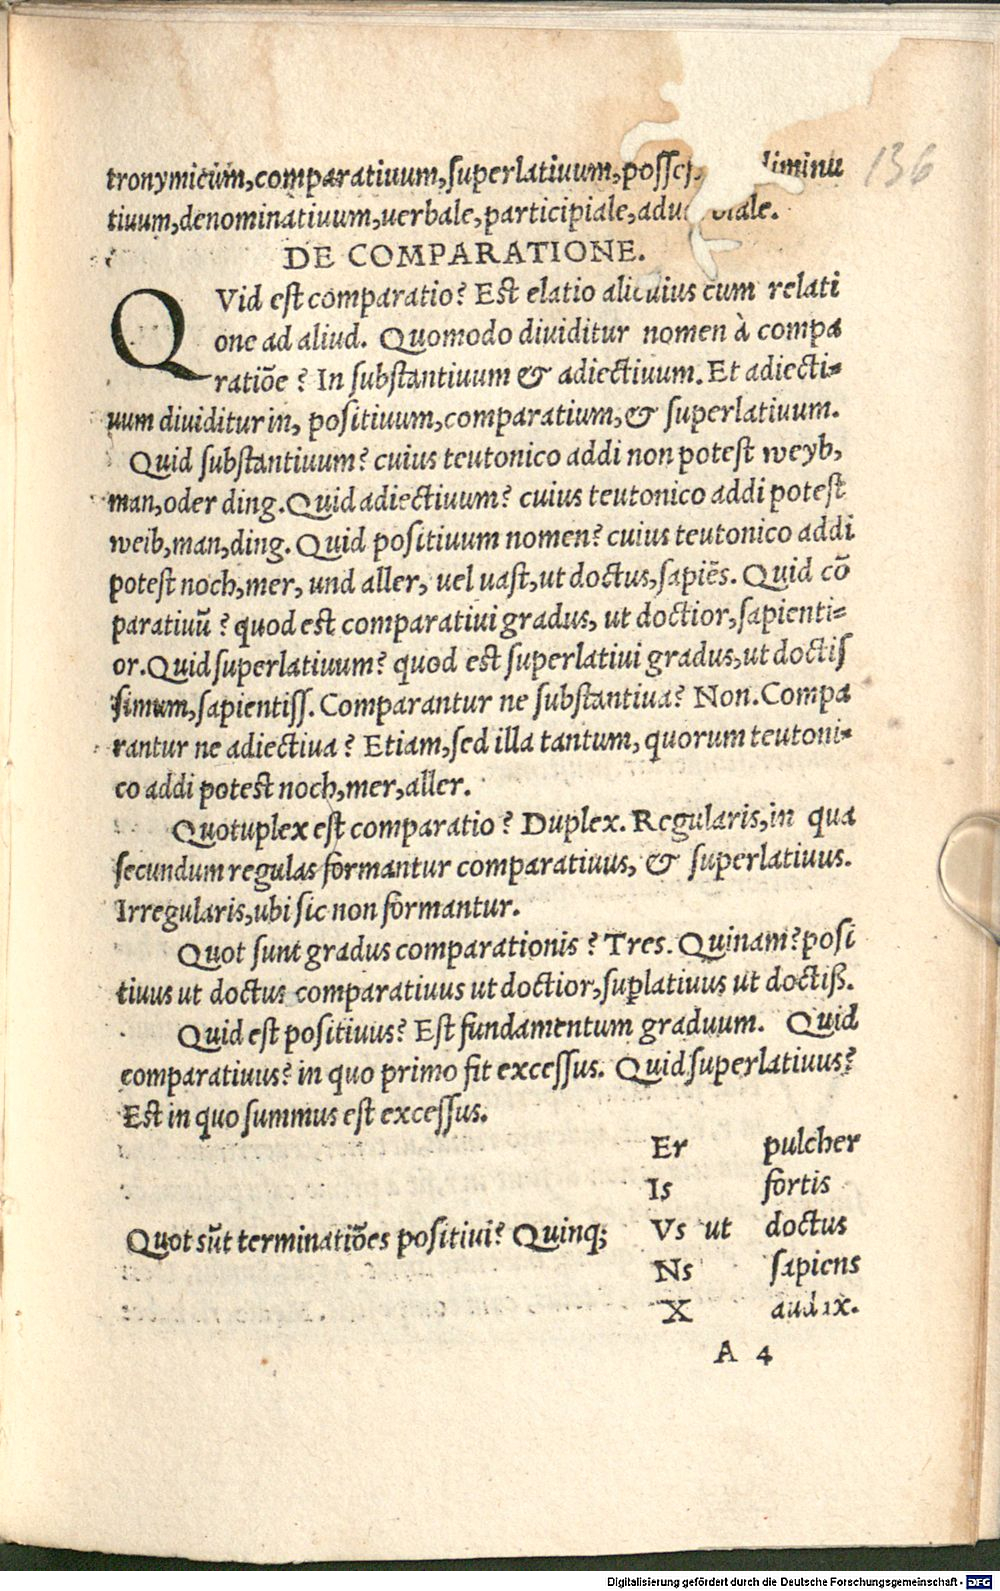 tronymicum,comparatiuum,superlatiuum, diminu
tiuum,denominatiuum,uerbale,participiale,
136
DE COMPARATIONE.
QVid est comparatio? Est elatio alicuius cum relati
one ad aliud. Quomodo diuiditur nomen à compa
ratiõe? In substantiuum & adiectiuum. Et adiecti-
uum diuiditur in, positiuum,comparatium,& superlatiuum.
Quid substantiuum? cuius teutonico addi non potest weyb,
man,oder ding. Quid adiectiuum? cuius teutonico addi potest
weib,man,ding. Quid positiuum nomen? cuius teutonico addi
potest noch,mer, und aller, uel uast,ut doctus,sapiẽs. Quid cõ
paratiuũ? quod est comparatiui gradus, ut doctior,sapienti-
or. Quid superlatiuum? quod est superlatiui gradus,ut doctis
simum,sapientiss. Comparantur ne substantiua? Non. Compa
rantur ne adiectiua? Etiam,sed illa tantum, quorum teutoni-
co addi potest noch,mer,aller.
Quotuplex est comparatio? Duplex. Regularis,in qua
secundum regulas formantur comparatiuus, & superlatiuus.
Irregularis,ubi sic non formantur.
Quot sunt gradus comparationis? Tres. Quinam? posi
tiuus ut doctus comparatiuus ut doctior,suplatiuus ut doctiß.
Quid est positiuus? Est fundamentum graduum. Quid
comparatiuus? in quo primo fit excessus. Quid superlatiuus?
Est in quo summus est excessus.
Er pulcher
Is fortis
Quot sũt terminatiões positiui? Quinq; Vs ut doctus
Ns sapiens
X audax.
A 4
Digitalisierung gefördert durch die Deutsche Forschungsgemeinschaft - DFG